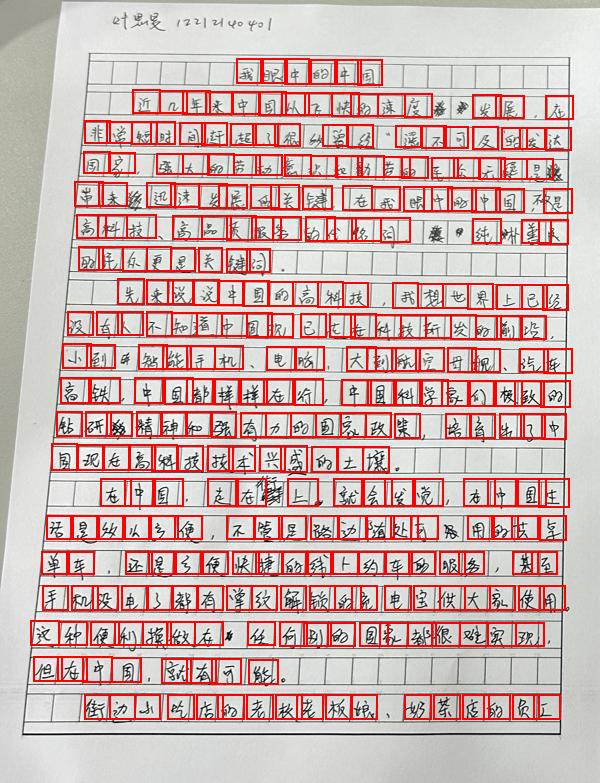 叶思旻 12212140401
我眼中的中国
近几年来中国以飞快的速度发展，在
非常短时间赶超了很多曾经“遥不可及”的发达
国家，强大的劳动意识和勤劳的民众无疑是
带来迅速发展的关键。在我眼中的中国，不是
高科技、高品质服务的代名词，纯朴善良
的民众更是关键词。
先来说说中国的高科技，我想世界上已经
没有人不知道中国现已走在科技研发的前沿，
小到智能手机、电脑，大到航空母舰、汽车
高铁，中国都样样在行，中国科学家们极致的
钻研精神和强有力的国家政策，培育出了中
国现在高科技技术兴盛的土壤。
在中国，走在街上。就会发觉，在中国生
活是多么方便，不管是路边随处可及用的共享
单车，还是方便快捷的线上约车的服务，甚至
手机没电了都有掌纹解锁的充电宝供大家使用。
这种便利操做在任何别的国家都很难实现，
但在中国，就有可能。
街边小吃店的老板老板娘、奶茶店的员工